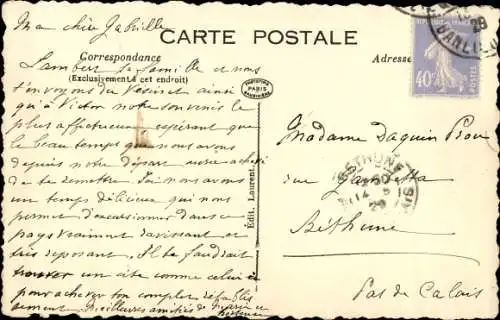 Ma chère Gabrielle
CARTE POSTALE
Correspondance
(Exclusivement à cet endroit)
Adresse
REPUBLIQUE FRANÇAISE
40c
POSTES
29
Lambert la famille et nous
t'envoyons du Vésinet ainsi
qu'à Victor notre souvenir le
plus affectueux espérant que
le beau temps que nous avons
depuis notre départ aura achevé
de te remettre. Ici nous avons
un temps délicieux qui nous
permet d'excursionner dans ce
pays vraiment ravissant et
très reposant. Il te faudrait
trouver un site comme celui-ci
pour achever ton complet rétablis
sement. Meilleures amitiés de
PARIS
Édit. Laurent
Madame Daquin
rue Gambetta
Béthune
Pas de Calais
BETHUNE